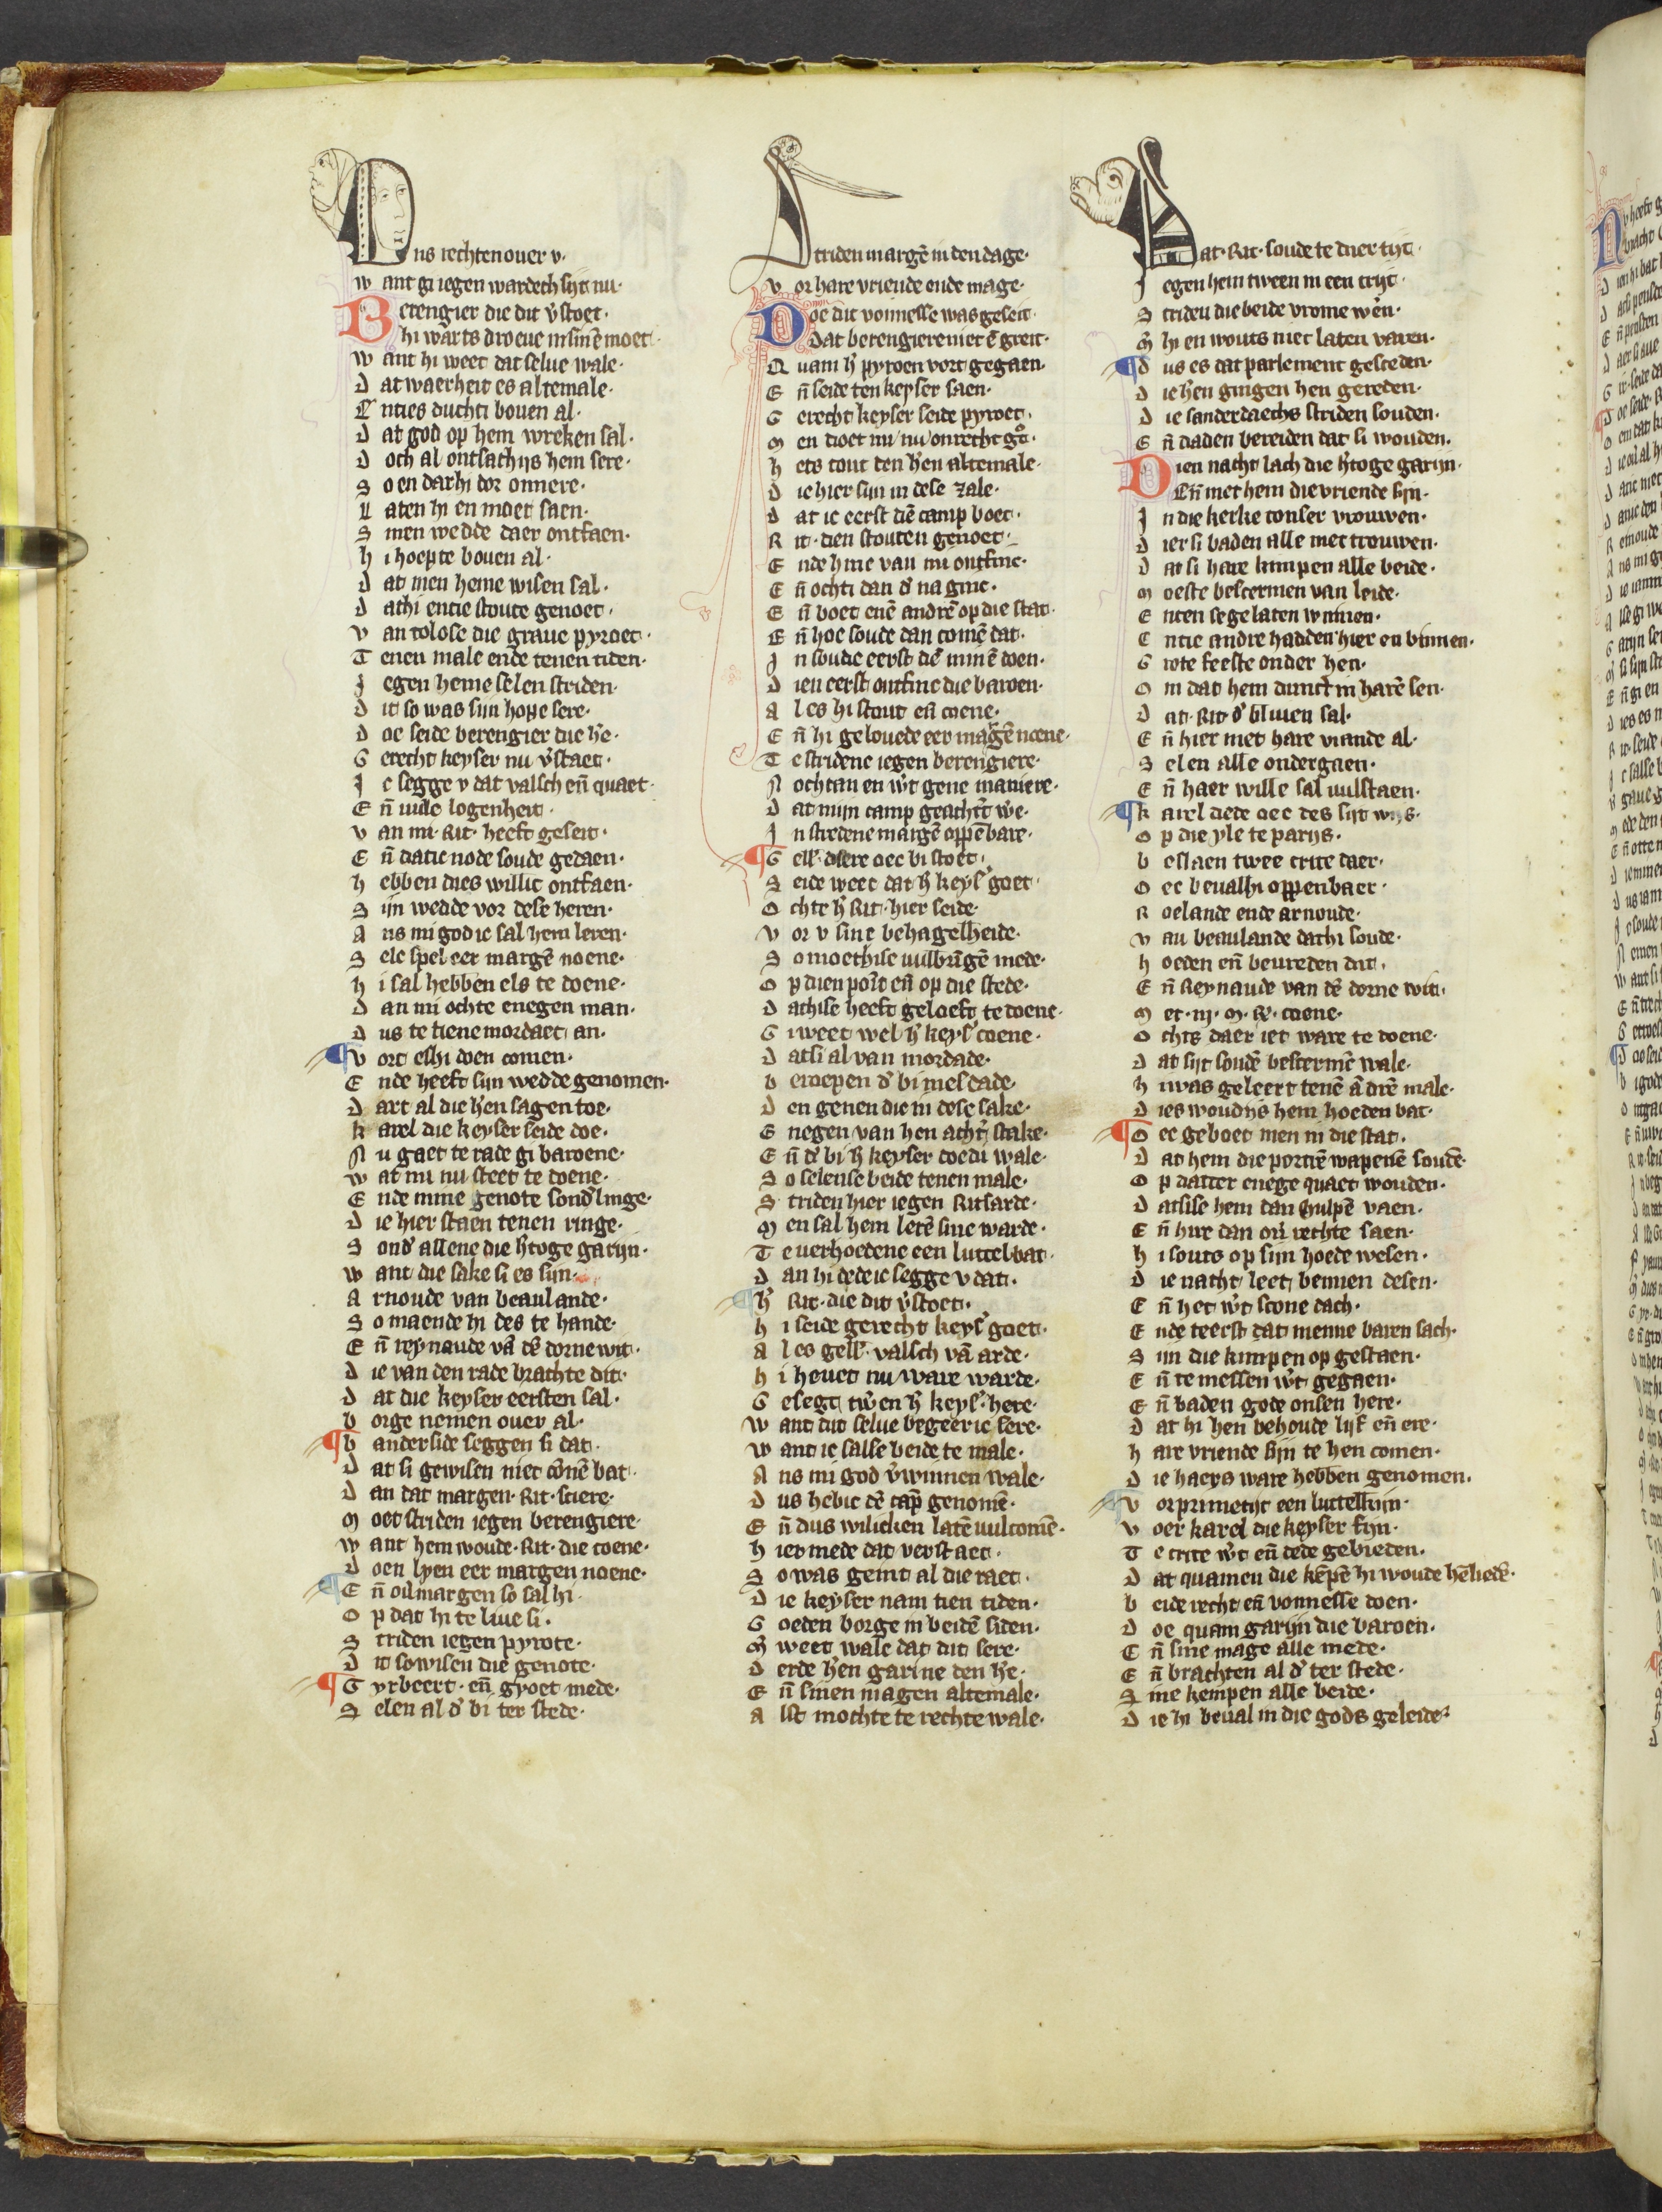 Dns rechten ouer v·
want gi iegen wardech sijt nu·
Berengier die dit v̾stoet·
hi warts droeue in sinē moet·
want hi weet dat selue wale·
dat waerheit es altemale·
Enties duchti bouen al·
dat god op hem wreken sal·
doch al ontsachijs hem sere·
so en darhi dor onnere·
Laten hi en moet saen·
smen wedde daer ontfaen·
hi hoepte bouen al·
dat men heme wisen sal·
dathi entie stoute genoet·
van tolose die graue pyroet·
Tenen male ende tenen tiden·
Jegen heme selen striden·
dit so was sijn hope sere·
doe seide berengier die h̾e·
Gerecht keyser nu v̾staet·
Jc segge v dat valsch eñ quaet·
Eñ uule logenheit·
van mi·Rit·heeft geseit·
Eñ datic node soude gedaen·
hebben dies willic ontfaen·
Sijn wedde vor dese heren·
Ans mi god ic sal hem leren·
Selc spel eer margē noene·
hi sal hebben els te doene·
dan mi ochte enegen man·
dus te tiene mordaet an·
¶vort eshi doen comen·
Ende heeft sijn wedde genomen·
dart al die h̾en sagen toe·
karel die keyser seide doe·
Nu gaet te rade gi baroene·
wat mi nu steet te doene·
Ende mine genote sond̾linge·
die hier staen tenen ringe·
Sond̾ allene die h̾toge garijn·
want die sake si es sijn·
Arnoude van beaulande·
So maende hi des te hande·
Eñ reynaude vā dē dorne wit·
die van den rade brachte dit·
dat die keyser eersten sal·
borge nemen ouer al·
¶banderside seggen si dat·
dat si gewisen niet cōnē bat·
dan dat margen·Rit·sciere·
moet striden iegen berengiere·
want hem woude·Rit·die coene·
doen lyen eer margen noene·
¶Eñ ou̾margen so sal hi·
op dat hi te liue si·
Striden iegen pyrote·
dit so wisen die genote·
¶Gyrbeert·eñ gyoet mede·
Selen al d̾ bi ter stede·
Striden margē in den dage·
vor hare vriende ende mage·
Doe dit vonnesse was geseit·
dat berengiere niet ē greit·
Quam h̾ pyroen vort gegaen·
Eñ seide ten keyser saen·
Gerecht keyser seide pyroet·
men doet mi nu onrecht g°·
hets tout den h̾en altemale·
die hier sijn in dese zale·
dat ic eerst dē camp boet·
Rit·dien stouten genoet·
Ende hine van mi ontfinc·
Eñ ochti dan d̾ na ginc·
Eñ boet enē andrē op die stat·
Eñ hoe soude dan comē dat·
Jn soudic eerst dē minē doen·
dien eerst ontfinc die baroen·
Al es hi stout eñ coene·
Eñ hi gelouede eer margē noene·
Te stridene iegen berengiere·
Nochtan en w̾t gene maniere·
dat mijn camp geacht̾t we·
Jn stredene margē oppēbare·
¶Gell̾· dsere oec bi stoet·
Seide weet dat h̾ keys̾ goet·
Ochte h̾ Rit·hier seide·
vor v sine behagelheide·
So moethise uulbrīgē mede·
op dien pōit eñ op die stede·
dathise heeft geloeft te doene·
Gi weet wel h̾ keys̾ coene·
datsi al van mordade·
beroepen d̾ bi mesdade·
den genen die in dese sake·
Gnegen van hen acht̾ stake·
Eñ d̾ bi h̾ keyser doedi wale·
So selense beide tenen male·
Striden hier iegen Ritsarde·
men sal hem lerē sine warde·
Te uerhoedene een luttel bat·
dan hi dede ic segge v dat·
¶h̾ Rit·die dit v̾stoet·
hi seide gerecht keys̾ goet·
Al es gell̾·valsch vā arde·
hi heuet nu ware warde·
Gesegt tw̾en h̾ keys̾·here·
want dit selue begeer ic sere·
want ic salse beide te male·
Ans mi god v̾winnen wale·
dus hebic dē cāp genomē·
Eñ dus wilicken latē uulcomē·
hier mede dat verstaet·
So was geint al die raet·
die keyser nam tien tiden·
Goeden borge in beidē siden·
m̄ weet wale dat dit sere·
derde h̾en garine den h̾e·
Eñ sinen magen altemale·
Alst mochte te rechte wale·
dat·Rit·soude te dier tijt·
Jegen hem tween in een crijt·
Striden die beide vrome wē̾n·
m̄ hi en wouts niet laten varen·
¶dus es dat parlement gesceden·
die h̾en gingen hen gereden·
die sanderdaechs striden souden·
Eñ daden bereiden dat si wouden·
Dien nacht lach die h̾toge garijn·
Eñ met hem die vriende sijn·
Jn die kerke tonser vrouwen·
dier si baden alle met trouwen·
dat si hare kimpen alle beide·
moeste bescermen van leide·
Enten sege laten winnen·
Entie andre hadden hier en binnen·
Grote feeste onder hen·
om dat hem dunct̾ in harē sen·
dat·Rit·d̾ bliuen sal·
Eñ hier met hare viande al·
Selen alle ondergaen·
Eñ haer wille sal uulstaen·
¶karel dede oec des sijt wijs·
op die yle te parijs·
beslaen twee crite daer·
oec beualhi oppenbaer·
Roelande ende arnoude·
van beaulande dathi soude·
hoeden eñ beureden dit·
Eñ Reynaude van dē dorne wit·
met·iij·m·R̄·coene·
ochts daer iet ware te doene·
dat sijt soudē bescermē wale·
hi was geleert tenē ādrē male·
dies woudijs hem hoeden bat·
¶oec geboet men in die stat·
dat hem die porterē wapenē soudē·
op datter enege quaet wouden·
datsise hem dan hulpē vaen·
Eñ hire dan ou̾ rechte saen·
hi souts op sijn hoede wesen·
die nacht leet binnen desen·
Eñ het w̾t scone dach·
Ende teerst dat menne baren sach·
Sijn die kimpen op gestaen·
Eñ te messen w̾t gegaen·
Eñ baden gode onsen here·
dat hi hen behoude lijf eñ ere·
hare vriende sijn te hen comen·
die haers ware hebben genomen·
¶vor primetijt een luttelkijn·
voer karel die keyser fijn·
Te crite w̾t eñ dede gebieden·
dat quamen die kēpē hi woude hē lied̾·
beide recht eñ vonnesse doen·
doe quam garijn die baroen·
Eñ sine mage alle mede·
Eñ brachten al d̾ ter stede·
Sine kempen alle beide·
die hi beual in die gods geleide·